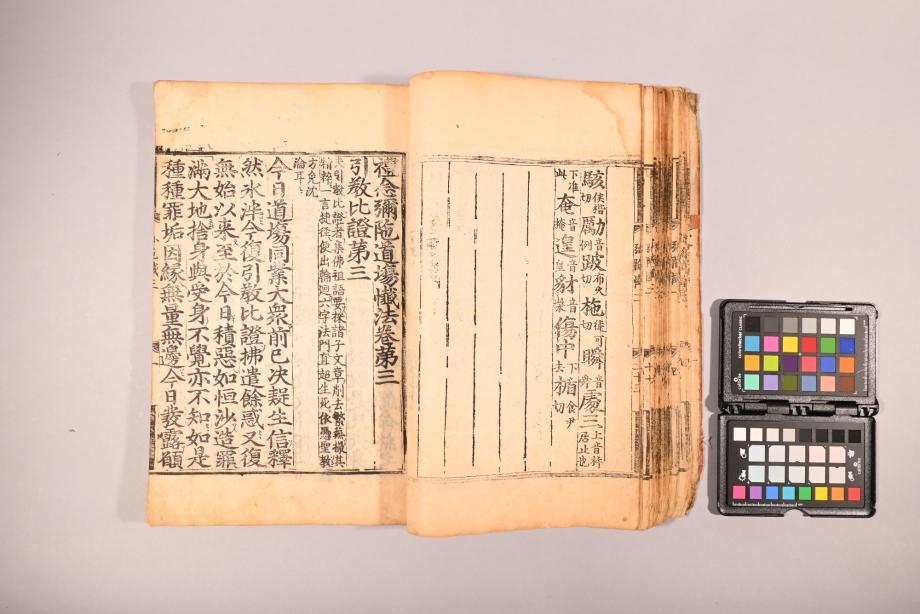 駭侯揩切勵音例跛布火切拖徒可切瞬音舜䖏三上音杵居止也
下准此奄音掩遑音皇豺音柴傷中下去楯食尹切
禮念彌陁道塲懺法卷苐三
引教比證第三
夫引教比證者集佛祖語要採諸子文章削去繁蕪撮其
精粹一言捷徑便出輪廻六字法門直超生死依憑聖教
方免沈
淪耳
今日道塲同業大衆前已决疑生信釋
然氷泮今復引教比證拂遣餘惑又復
無始以来至於今日積惡如恒沙造罪
滿大地捨身與受身不覺亦不知如是
種種罪垢因緣無量無邊今日發露願